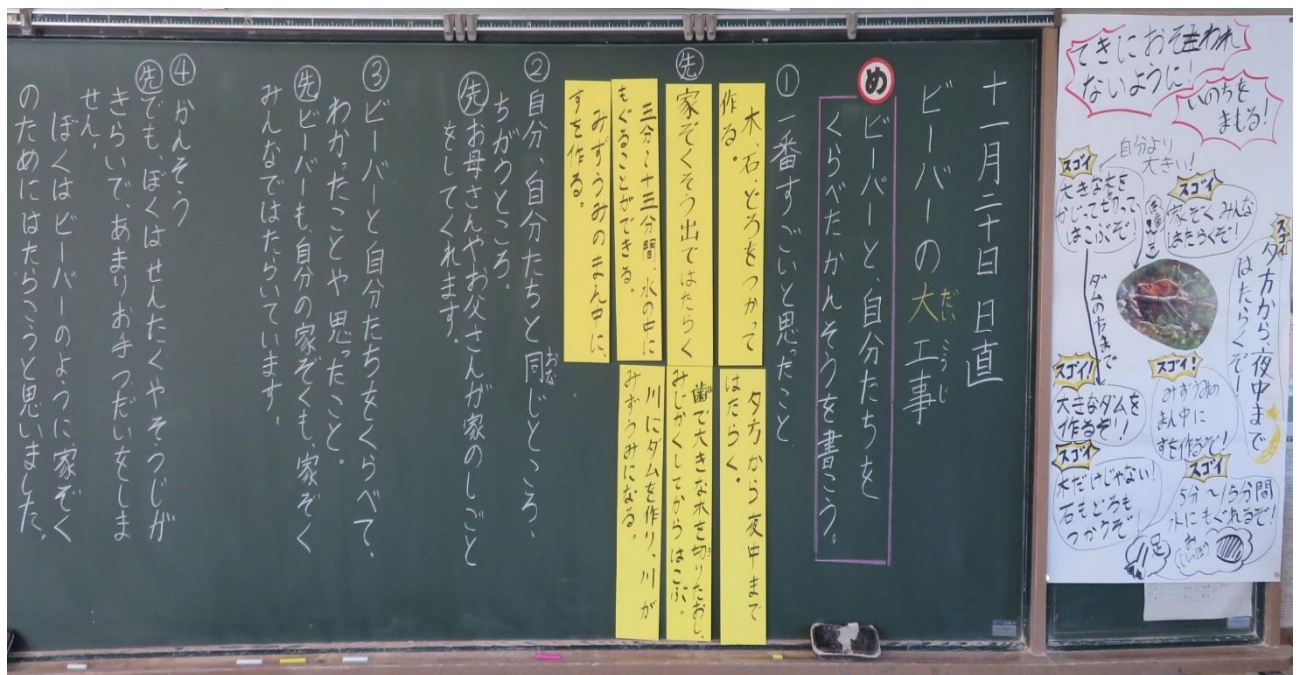 十一月二十日 日直
ビーバーの大工事
だいこうじ
め
ビーバーと、自分たちを
くらべたかんそうを書こう。
①一番すごいと思ったこと
先
木、石、どろをつかって
作る。
家ぞくそう出ではたらく
三分〜十三分間、水の中に
もぐることができる。
みずうみのまん中に、
すを作る。
夕方から夜中まで
はたらく。
歯で大きな木を切りたおし、
みじかくしてからはこぶ。
川にダムを作り、川が
みずうみになる。
②自分、自分たちと同じところ、
おな
ちがうところ。
先お母さんやお父さんが家のしごと
をしてくれます。
③ビーバーと自分たちをくらべて、
わかったことや思ったこと。
先ビーバーも、自分の家ぞくも、家ぞく
みんなではたらいています。
④かんそう
先でも、ぼくはせんたくやそうじが
きらいで、あまりお手つだいをしま
せん。
ぼくはビーバーのように家ぞく
のためにはたらこうと思いました。
てきにおそわれ
ないように!
いのちを
まもる!
自分より
大きい!
スゴイ
大きな木を
かじって切って、
はこぶぞ!
スゴイ
家ぞくみんな
はたらくぞ!
スゴイ
夕方から、夜中まで
はたらくぞ!
ダムの方まで
スゴイ!
大きなダムを
作るぞ!
スゴイ!
みずうみの
まん中に
すを作るぞ!
スゴイ
木だけじゃない!
石もどろも
つかうぞ!
スゴイ
5分〜15分間
水にもぐれるぞ!
足